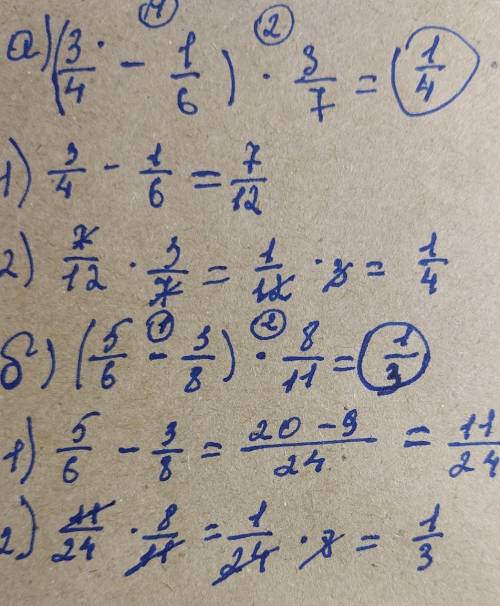 а) (3/4 - 1/6) · 3/7 = 1/4
1) 3/4 - 1/6 = 7/12
2) 7/12 · 3/7 = 1/12 · 3 = 1/4
б) (5/6 - 3/8) · 8/11 = 1/3
1) 5/6 - 3/8 = 20-9/24 = 11/24
2) 11/24 · 8/11 = 1/24 · 8 = 1/3